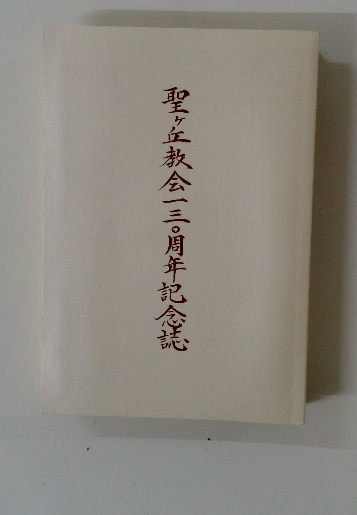 聖ヶ丘教会一三〇周年記念誌